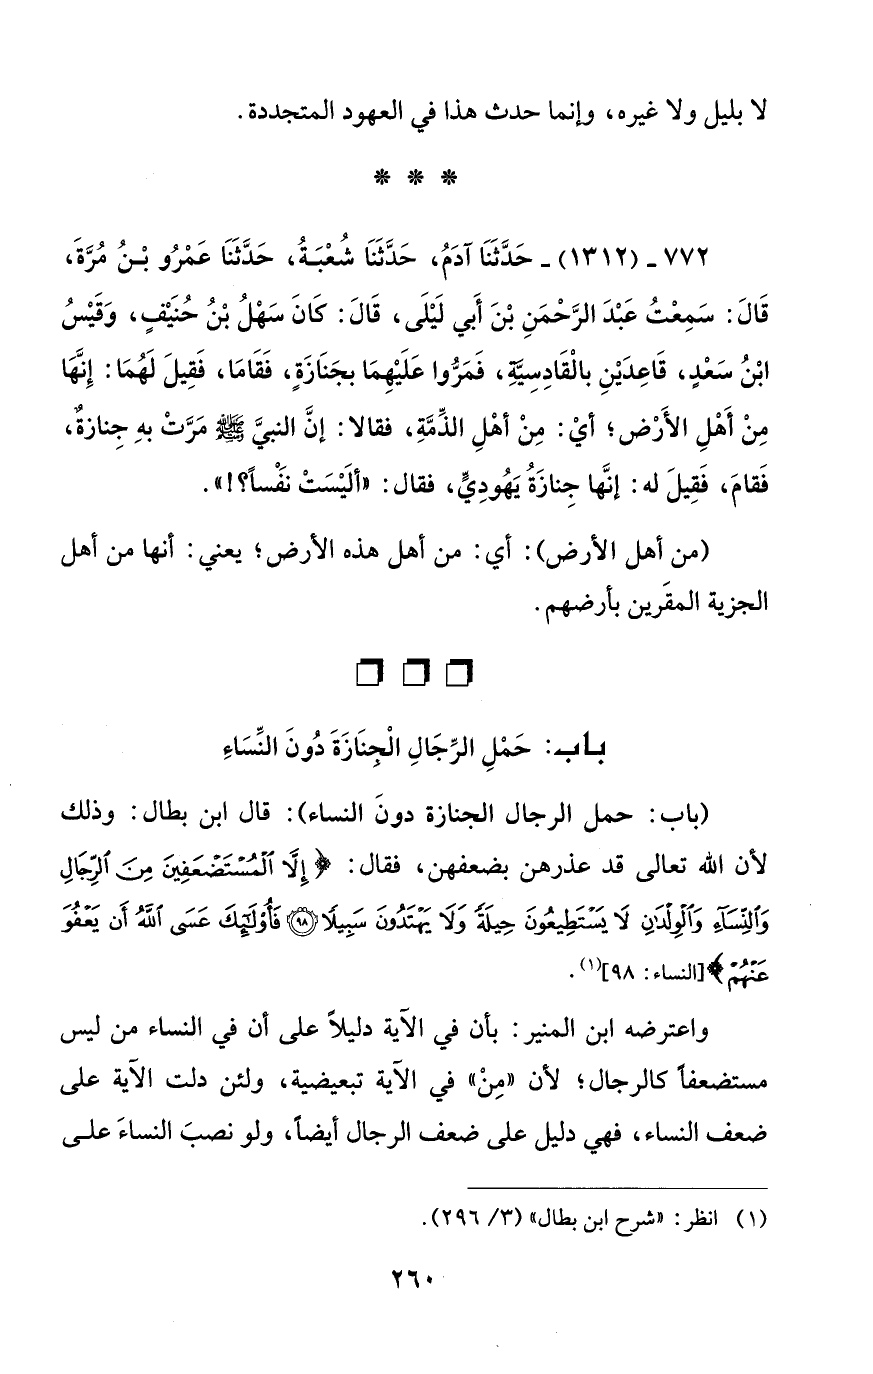 لا بليل ولا غيره، وإنما حدث هذا في العهود المتجددة.
* * *
٧٧٢ ـ (١٣١٢) ـ حَدَّثَنَا آدَمُ، حَدَّثَنَا شُعْبَةُ، حَدَّثَنَا عَمْرُو بْنُ مُرَّةَ،
قَالَ: سَمِعْتُ عَبْدَ الرَّحْمَنِ بْنَ أَبِي لَيْلَى، قَالَ: كَانَ سَهْلُ بْنُ حُنَيْفٍ، وَقَيْسُ
ابْنُ سَعْدٍ، قَاعِدَيْنِ بِالْقَادِسِيَّةِ، فَمَرُّوا عَلَيْهِمَا بِجَنَازَةٍ، فَقَامَا، فَقِيلَ لَهُمَا: إِنَّهَا
مِنْ أَهْلِ الأَرْضِ؛ أَيْ: مِنْ أَهْلِ الذِّمَّةِ، فقالا: إِنَّ النبيَّ ﷺ مَرَّتْ بهِ جِنازةٌ،
فَقامَ، فَقِيلَ له: إنَّها جِنازَةُ يَهُودِيٍّ، فقال: «ألَيْسَتْ نَفْساً؟!».
(من أهل الأرض): أي: من أهل هذه الأرض؛ يعني: أنها من أهل
الجزية المقَرين بأرضهم.
❒ ❒ ❒
باب: حَمْلِ الرِّجَالِ الْجِنَازَةَ دُونَ النِّسَاءِ
(باب: حمل الرجال الجنازة دونَ النساء): قال ابن بطال: وذلك
لأن الله تعالى قد عذرهن بضعفهن، فقال: ﴿إِلَّا ٱلْمُسْتَضْعَفِينَ مِنَ ٱلرِّجَالِ
وَٱلنِّسَآءِ وَٱلْوِلْدَٰنِ لَا يَسْتَطِيعُونَ حِيلَةً وَلَا يَهْتَدُونَ سَبِيلًا ۝٩٨ فَأُو۟لَٰٓئِكَ عَسَى ٱللَّهُ أَن يَعْفُوَ
عَنْهُمْ﴾ [النساء: ٩٨](١).
واعترضه ابن المنير: بأن في الآية دليلاً على أن في النساء من ليس
مستضعفاً كالرجال؛ لأن «مِنْ» في الآية تبعيضية، ولئن دلت الآية على
ضعف النساء، فهي دليل على ضعف الرجال أيضاً، ولو نصبَ النساءَ على
(١) انظر: «شرح ابن بطال» (٣/ ٢٩٦).
٢٦٠